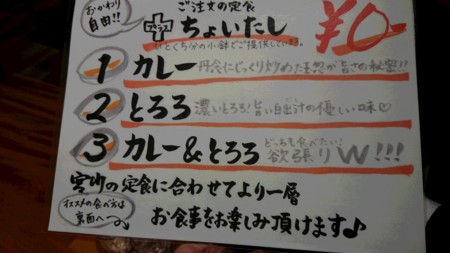 おかわり
自由!!
ご注文の定食
プラス
ちょいたし
ひとくち分の小鉢でご提供しています。
¥0
1 カレー 丹念にじっくり炒めた玉葱が旨さの秘密!!
2 とろろ 濃いとろろ!旨い白出汁の優しい味♡
3 カレー&とろろ どっちも食べたい!
欲張りW!!!
宮崎の定食に合わせてより一層
お食事をお楽しみ頂けます♪
オススメの食べ方は
裏面へ